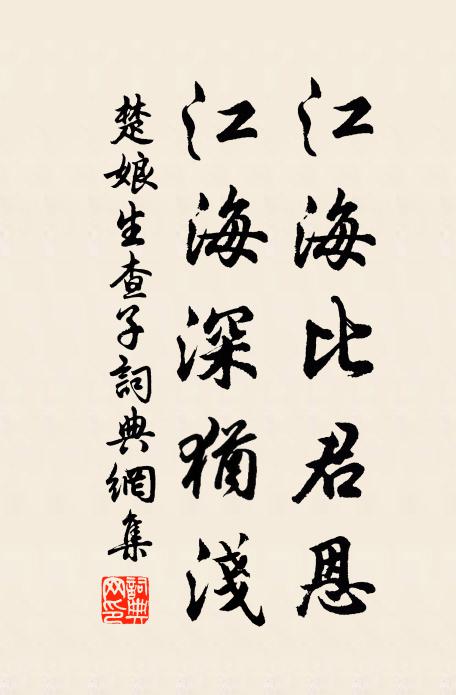 江海比君恩
江海深猶淺
楚娘生查子詞典網集
詞典網印